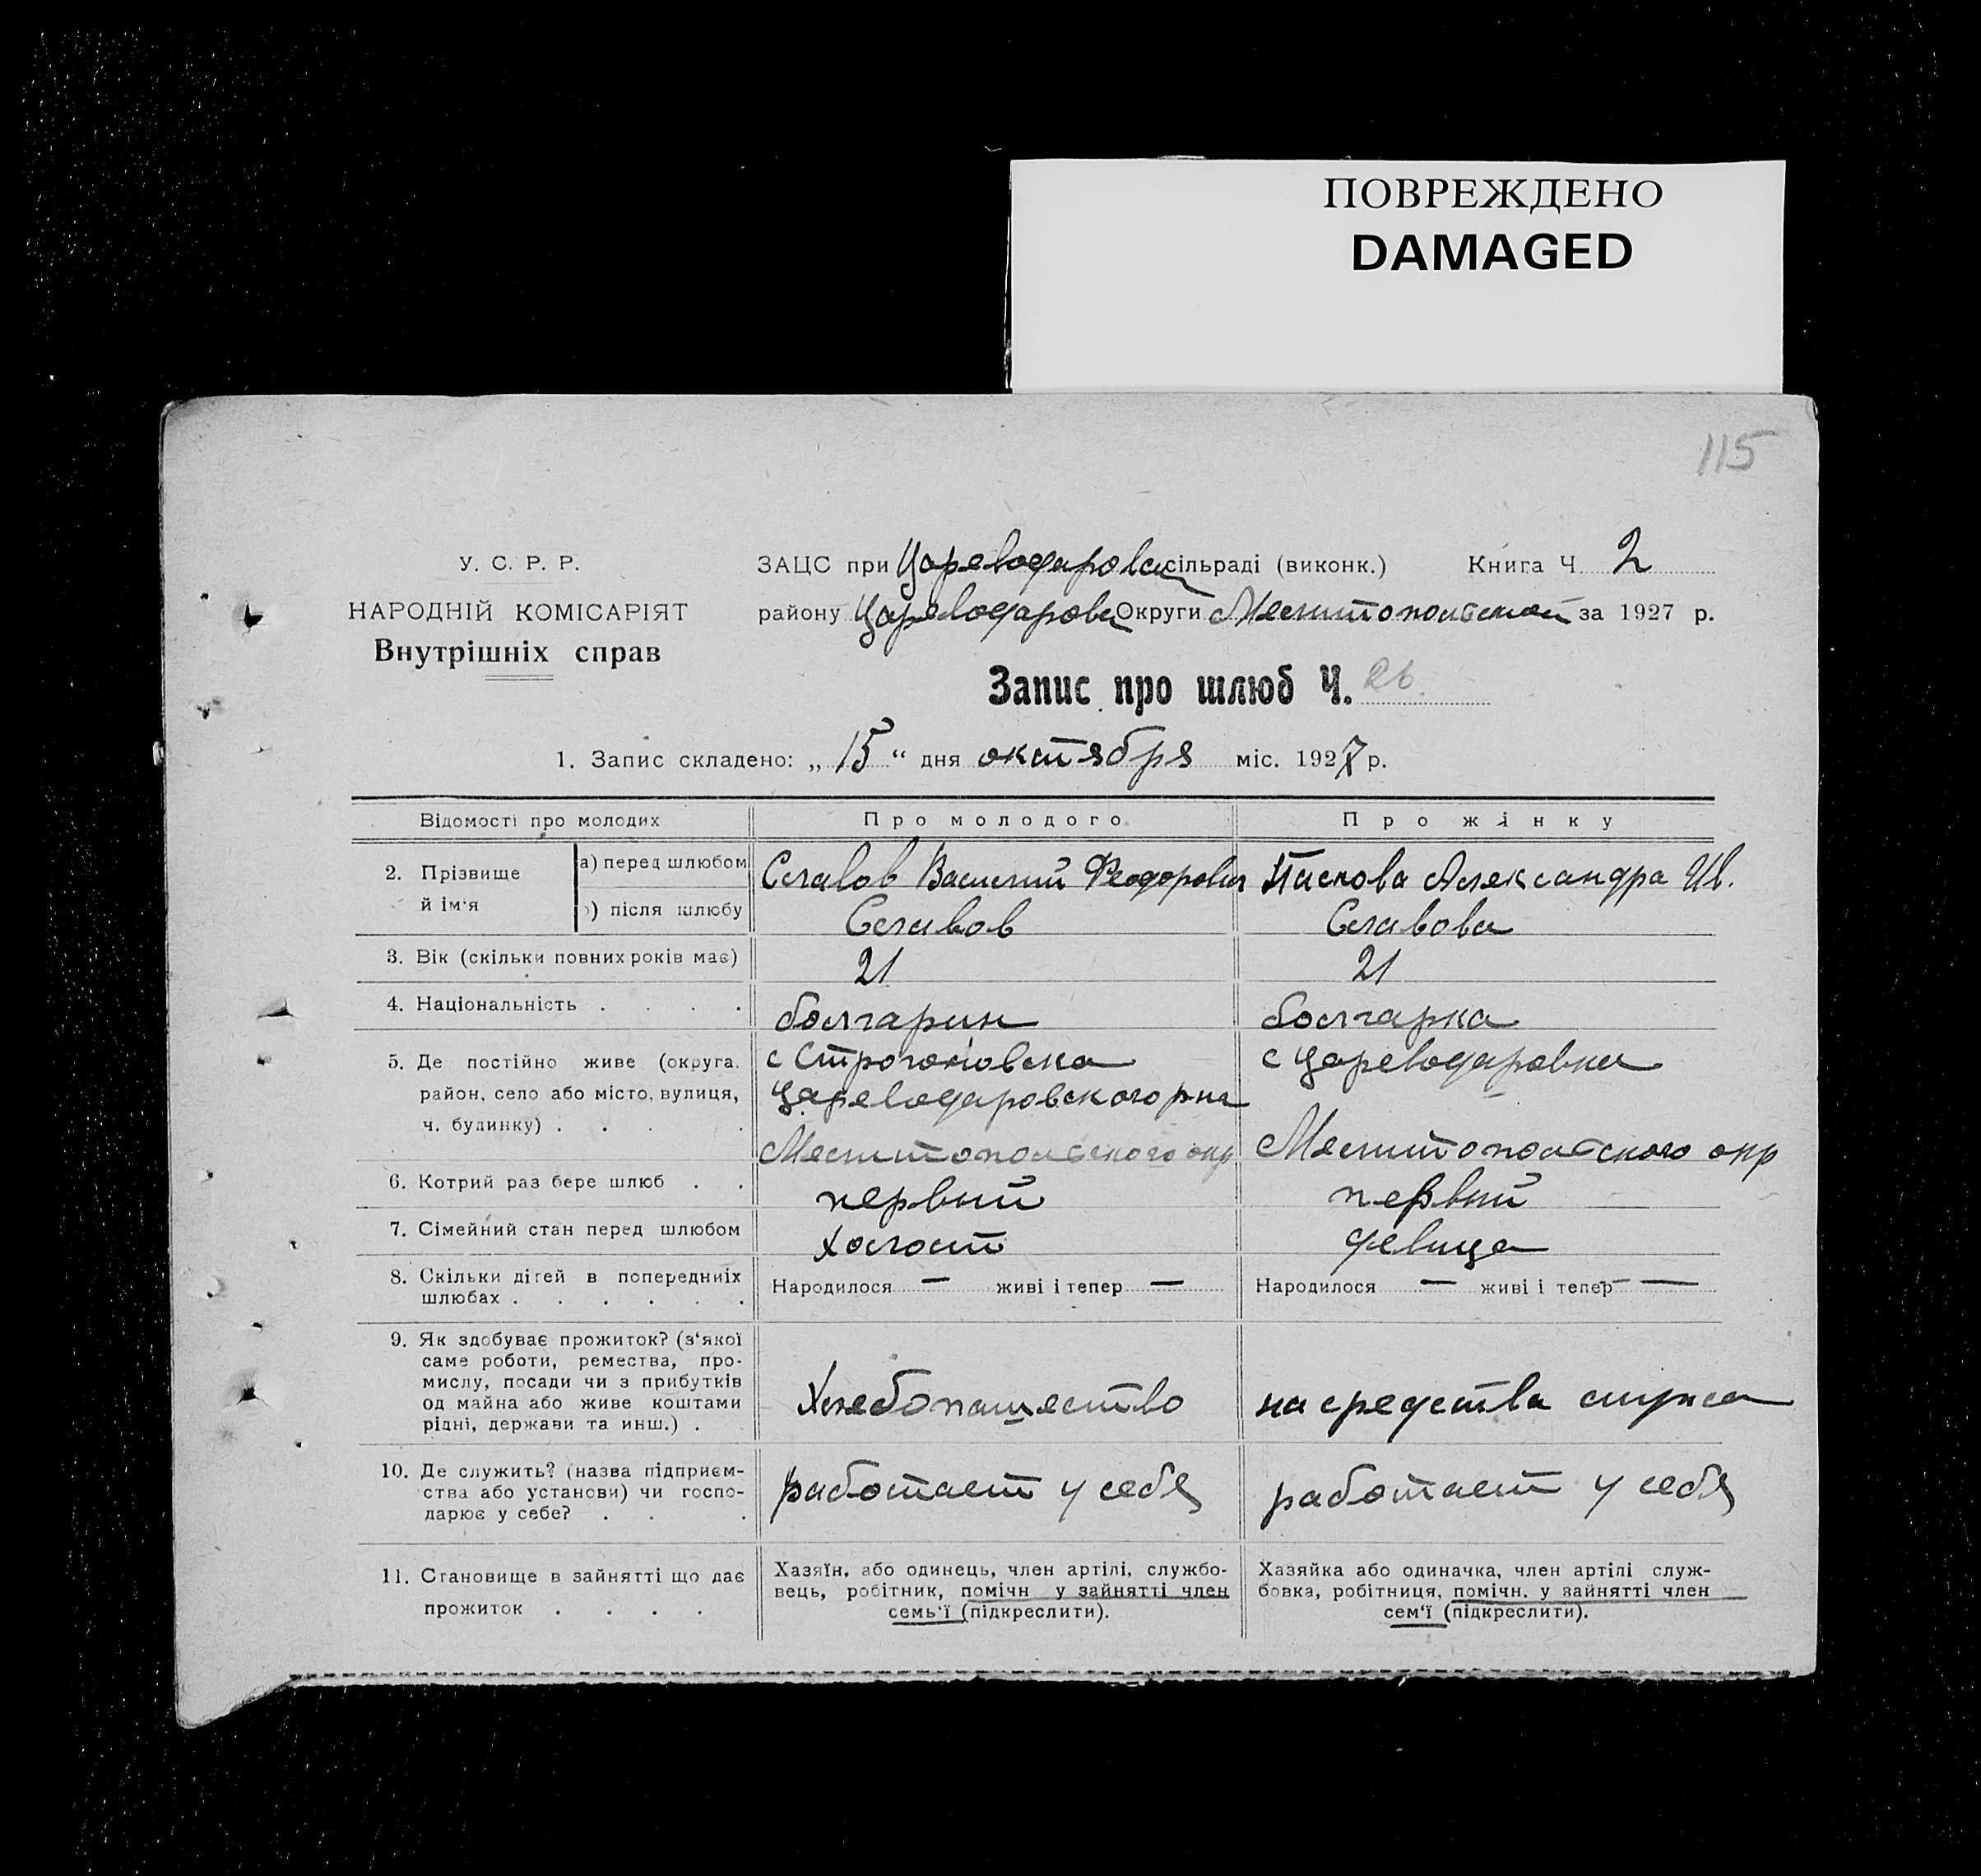 ПОВРЕЖДЕНО
DAMAGED
115
У. С. Р. Р.
НАРОДНІЙ КОМІСАРІЯТ
Внутрішніх справ
ЗАЦС при Цареводаровск сільраді (виконк.) Книга Ч. 2
району Цареводаровск Округи Мелитопольской за 1927 р.
Запис про шлюб Ч. 26
1. Запис складено: „ 15 “ дня октября міс. 1927 р.
Відомості про молодих Про молодого Про жінку
2. Прізвище й ім'я
а) перед шлюбом Славов Василий Феодорович Паскова Александра Ив.
б) після шлюбу Славов Славова
3. Вік (скільки повних років має) 21 21
4. Національність . . . . болгарин болгарка
5. Де постійно живе (округа, район, село або місто, вулиця, ч. будинку) . . . .
с Строгоновка
Цареводаровского р-на
Мелитопольского окр
с Цареводаровка
Мелитопольского окр
6. Котрий раз бере шлюб . . первый первый
7. Сімейний стан перед шлюбом холост девица
8. Скільки дітей в попередниіх шлюбах . . . . . .
Народилося — живі і тепер —
Народилося — живі і тепер —
9. Як здобуває прожиток? (з'якої
саме роботи, ремества, про-
мислу, посади чи з прибутків
од майна або живе коштами
рідні, держави та инш.) .
Хлебопашество
на средства мужа
10. Де служить? (назва підприєм-
ства або установи) чи госпо-
дарює у себе? . . .
работает у себя
работает у себя
11. Становище в зайнятті що дає
прожиток . . . .
Хазяїн, або одинець, член артілі, службо-
вець, робітник, помічн у зайнятті член
семь'ї (підкреслити).
Хазяйка або одиначка, член артілі служ-
бовка, робітниця, помічн. у зайнятті член
сем'ї (підкреслити).